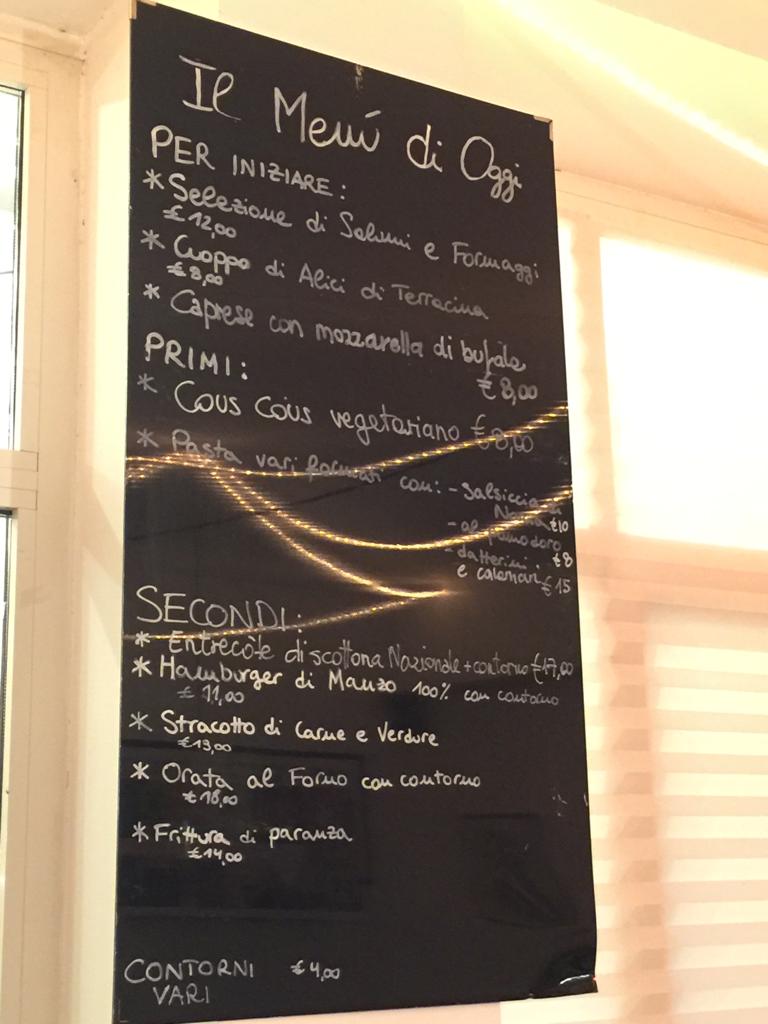 Il Menú di Oggi
PER INIZIARE:
* Selezione di Salumi e Formaggi
€ 12,00
* Cuoppo di Alici di Terracina
€ 8,00
* Caprese con mozzarella di bufala
€ 8,00
PRIMI:
* Cous Cous vegetariano € 8,00
* Pasta vari formati con: - Salsiccia di
Norcia €10
- al pomodoro
€8
- datterini
e calamari €15
SECONDI:
* Entrecôte di scottona Nazionale + contorno €17,00
* Hamburger di Manzo 100% con contorno
€ 11,00
* Stracotto di Carne e Verdure
€13,00
* Orata al Forno con contorno
€ 18,00
* Frittura di paranza
€ 14,00
CONTORNI € 4,00
VARI